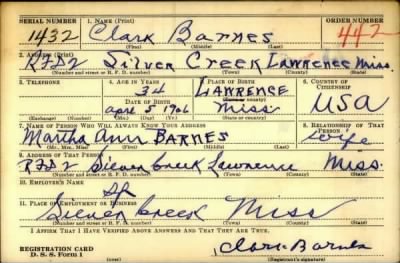 SERIAL NUMBER 1. NAME (Print) ORDER NUMBER
1432 Clark Barnes 442
(First) (Middle) (Last)
2. ADDRESS (Print)
RFD2 Silver Creek Lawrence Miss.
(Number and street or R. F. D. number) (Town) (County) (State)
3. TELEPHONE 4. AGE IN YEARS 5. PLACE OF BIRTH 6. COUNTRY OF CITIZENSHIP
34 LAWRENCE
DATE OF BIRTH (Town or county) USA
april 5 1906 Miss
(Exchange) (Number) (Mo.) (Day) (Yr.) (State or country)
7. NAME OF PERSON WHO WILL ALWAYS KNOW YOUR ADDRESS 8. RELATIONSHIP OF THAT PERSON
Martha Ann BARNES wife
(Mr., Mrs., Miss) (First) (Middle) (Last)
9. ADDRESS OF THAT PERSON
RFD2 Silver Creek Lawrence Miss.
(Number and street or R. F. D. number) (Town) (County) (State)
10. EMPLOYER'S NAME
11. PLACE OF EMPLOYMENT OR BUSINESS
Silver Creek Miss
(Number and street or R. F. D. number) (Town) (County) (State)
I AFFIRM THAT I HAVE VERIFIED ABOVE ANSWERS AND THAT THEY ARE TRUE.
REGISTRATION CARD
D. S. S. Form 1 Clark Barnes
(Registrant's signature)